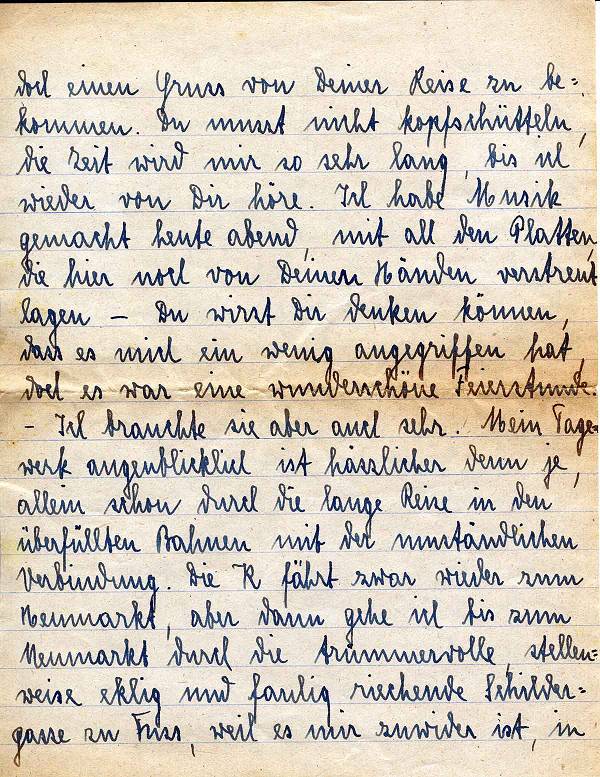 doch einen Gruss von Deiner Reise zu be=
kommen. Du musst nicht kopfschütteln,
die Zeit wird mir so sehr lang, bis ich
wieder von Dir höre. Ich habe Musik
gemacht heute abend, mit all den Platten,
die hier noch von Deinen Händen verstreut
lagen – Du wirst Dir denken können,
dass es mich ein wenig angegriffen hat,
doch es war eine wunderschöne Feierstunde.
- Ich brauchte sie aber auch sehr. Mein Tage=
werk augenblicklich ist hässlicher denn je,
allein schon durch die lange Reise in den
überfüllten Bahnen mit der umständlichen
Verbindung. Die K fährt zwar wieder zum
Neumarkt, aber dann gehe ich bis zum
Neumarkt durch die trümmervolle, stellen=
weise eklig und faulig riechende Schilder=
gasse zu Fuss, weil es mir zuwider ist, in